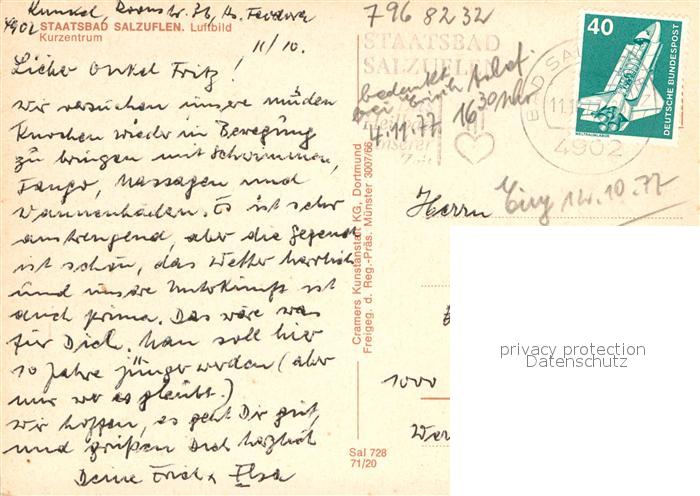 Kunkel, Roonstr. 26, Hs. Feodora
4902 STAATSBAD SALZUFLEN. Luftbild
Kurzentrum
11/10.
Lieber Onkel Fritz!
Wir versuchen unsere müden
Knochen wieder in Bewegung
zu bringen mit Schwimmen,
Fango, Massagen und
Wannenbaden. Es ist sehr
anstrengend, aber die Gegend
ist schön, das Wetter herrlich
und unsere Unterkunft ist
auch prima. Das wäre was
für Dich. Man soll hier
10 Jahre jünger werden (aber
nur wer es glaubt.)
Wir hoffen, es geht Dir gut,
und grüßen Dich herzlich
Deine Erich & Elsa
Cramers Kunstanstalt KG, Dortmund
Freigeg. d. Reg.-Präs. Münster 3007/66
Sal 728
71/20
796 82 32
STAATSBAD
SALZUFLEN
bedankt
bei Erich telef.
4.11.77 16 30 Uhr
unserer
Zeit
BAD SAL
11.10.77
4902
40
DEUTSCHE BUNDESPOST
WELTRAUMLABOR
Herrn
Eing 14.10.77
1000
privacy protection
Datenschutz